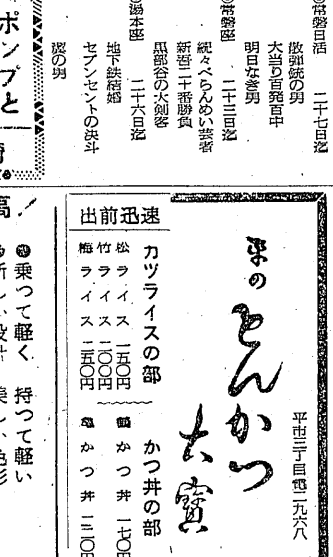 ◎常磐日活　二十七日迄
散弾銃の男
大当り百発百中
明日なき男
◎常磐座　二十三日迄
続々べらんめい芸者
新吾二十番勝負
黒部谷の大剣客
湯本座　二十六日迄
地下鉄結婚
セブンセントの決斗
波の男
ポンプと
平のとんかつ
大寶
平市三丁目電二九六八
出前迅速
カツライスの部
松ライス 一五〇円
竹ライス 一〇〇円
梅ライス 一五〇円
かつ丼の部
鶴かつ丼 一七〇円
亀かつ丼 一二〇円
高!
乗つて軽く　持つて軽い